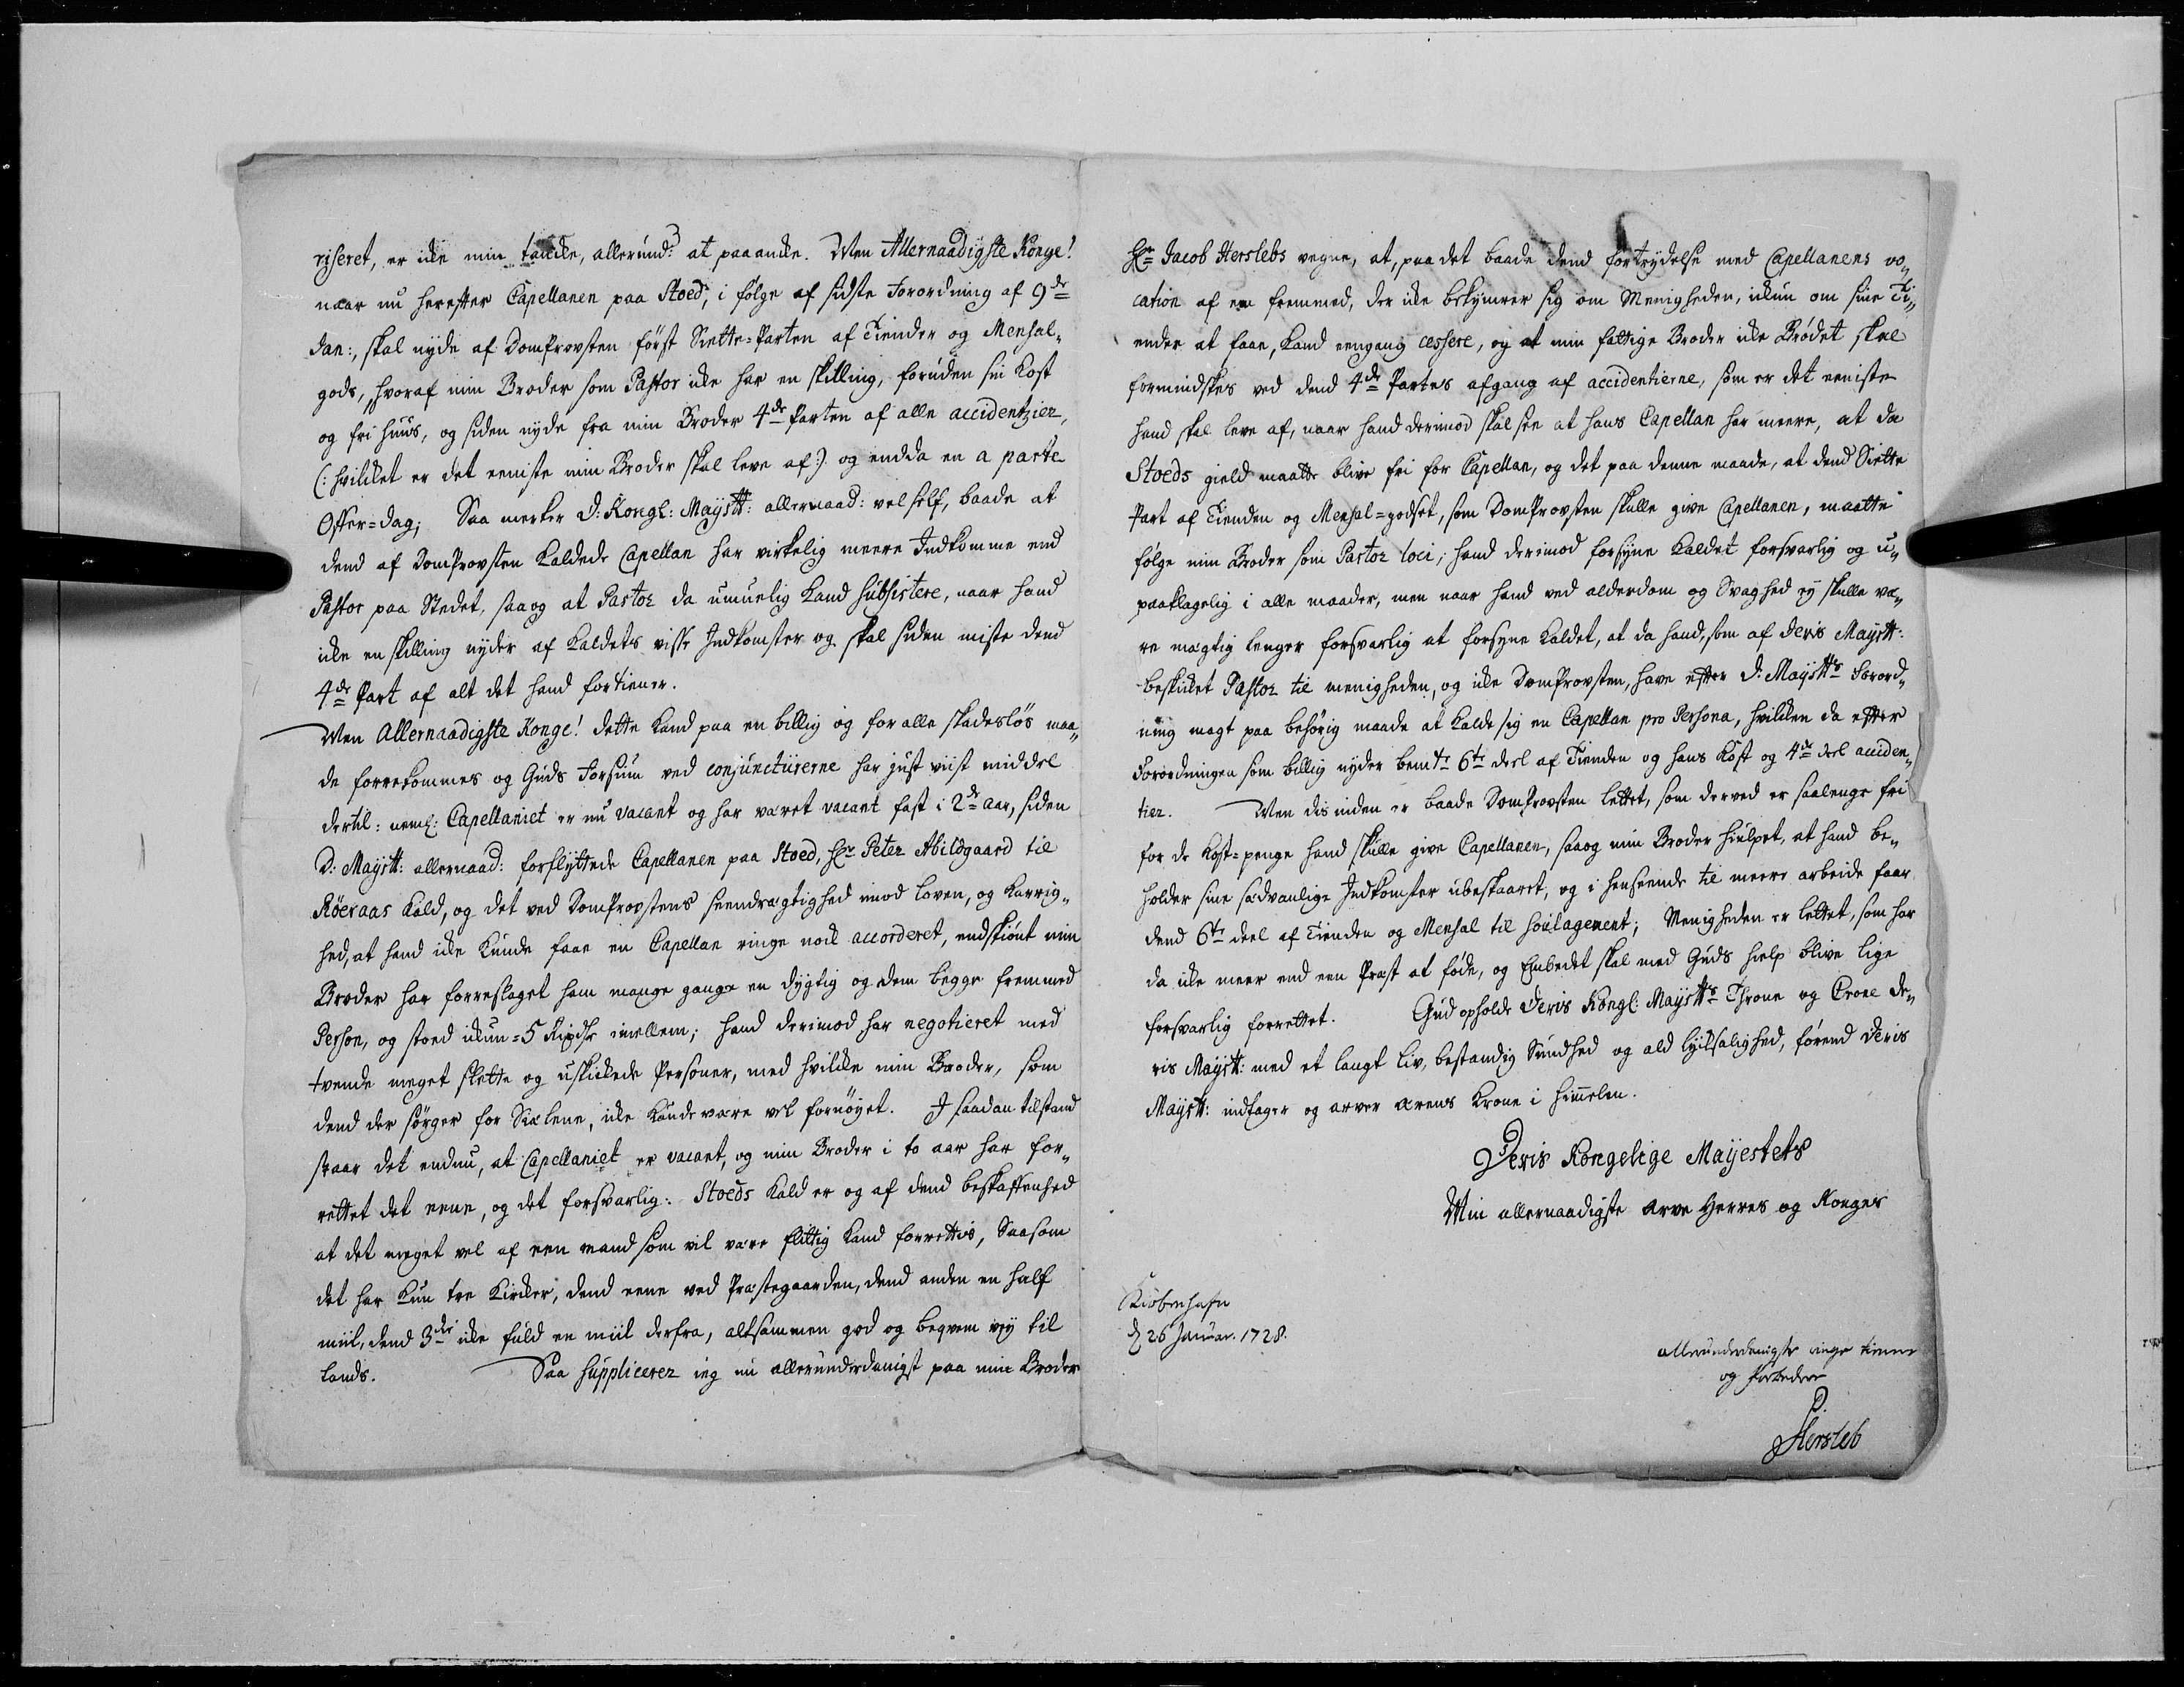 riseret, er icke min tancke, allerund: at paaancke. Men Allernaadigste Konge!
naar nu herefter Capellanen paa Stoed, i følge af sidste Forordning af 9de
Jan:, skal nyde af DomProvsten først Siette-Parten af Tiender og Mensal-
gods, hvoraf min Broder som Pastor icke har en skilling, foruden sin Kost
og fri huus, og siden nyde fra min Broder 4de Parten af alle accidentzier,
(: hvilcket er det eeniste min Broder skal leve af :) og endda en a parte
Offer-dag; Saa mercker D: Kongl: Maystt: allernaad: vel self, baade at
dend af DomProvsten kaldede Capellan har virkelig meere Indkomme end
Pastor paa Stedet, saa og at Pastor da umuelig kand subsistere, naar hand
icke en skilling nyder af Kaldets visse Indkomster og skal siden miste dend
4de Part af alt det hand fortiener.
Men Allernaadigste Konge! dette kand paa en billig og for alle skadesløs maa-
de forrekommes og Guds Forsiun ved conjuncturerne har just viist middel
dertil: neml: Capellaniet er nu vacant og har været vacant fast i 2de aar, siden
D: Maystt: allernaad: forflyttede Capellanen paa Stoed, Hr Peter Abildgaard til
Röeraas Kald, og det ved DomProvstens seendrægtighed imod loven, og karrig-
hed, at hand icke kunde faae en Capellan ringe nock accorderet, endskiönt min
Broder har forreslaget ham mange gange en dygtig og dem begge fremmed
Person, og stoed ickun 5 Rixdlr imellem; hand derimod har negotieret med
tvende meget slette og uskickede Personer, med hvilcke min Broder, som
dend der sørger for Siælene, icke kunde være vel fornøyet. I saadan tilstand
staar det endnu, at Capellaniet er vacant, og min Broder i to aar har for-
rettet det eene, og det forsvarlig. Stoeds Kald er og af dend beskaffenhed
at det meget vel af een mand som vil være flittig kand forrettis, Saasom
det har kun tre Kircker, dend eene ved Præstegaarden, dend anden en half
miil, dend 3die icke fuld en miil derfra, altsammen god og beqvem vey til
lands. Saa supplicerer ieg nu allerunderdanigst paa min Broder
Hr Jacob Herslebs vegne, at, paa det baade dend fortrydelse med Capellanens vo-
cation af en fremmed, der icke bekymrer sig om Menigheden, ickun om sine Ti-
ender at faae, kand eengang cessere, og at min fattige Broder icke Brødet skal
formindskes ved dend 4de Partes afgang af accidentierne, som er det eeniste
hand skal leve af, naar hand derimod skal see at hans Capellan har meere, at da
Stoeds gield maatte blive fri for Capellan, og det paa denne maade, at dend Siette
Part af Tienden og Mensal-godset, som DomProvsten skulle give Capellanen, maatte
følge min Broder som Pastor loci; hand derimod forsyne Kaldet forsvarlig og u-
paaklagelig i alle maader, men naar hand ved alderdom og Svaghed ey skulle væ-
re mægtig lenger forsvarlig at forsyne Kaldet, at da hand, som af Deris Maystt:
beskicket Pastor til menigheden, og icke DomProvsten, have efter D: Maystts Forord-
ning magt paa behörig maade at kalde sig en Capellan pro Persona, hvilcken da efter
Forordningen som billig nyder bemte 6te deel af Tienden og hans Kost og 4de deel acciden-
tier. Men dis inden er baade DomProvsten lettet, som derved er saalenge fri
for de Kost-penge hand skulle give Capellanen, saa og min Broder hiulpet, at hand be-
holder sine sædvanlige Indkomster ubeskaaret, og i henseende til meere arbeide faar
dend 6te deel af Tienden og Mensal til soulagement; Menigheden er lettet, som har
da icke meer end een Præst at føde, og Embedet skal med Guds hielp blive lige
forsvarlig forrettet. Gud opholde Deris Kongl: Maystts Throne og Crone De-
ris Maystt: med et langt liv, bestandig Sundhed og ald lyksalighed, førend Deris
Maystt: indtager og arver ærens Krone i himmelen.
Deris Kongelige Mayestets
Min allernaadigste Arve Herres og Konges
Kiöbenhafn
d 26 Januar. 1728.
allerunderdanigste ringe tienner
og forbeder
P.
Hersleb